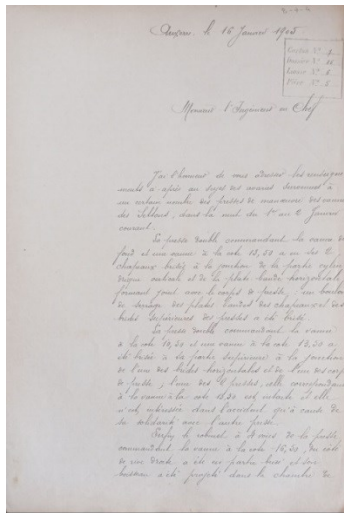 le 16 Janvier 1905
Carton N°
Dossier N°
Liasse N° 6
Pièce N° 5
Monsieur l'Ingénieur en Chef
J'ai l'honneur de vous adresser les renseigne-
ments ci-après au sujet des avaries survenues à
un certain nombre des presses de manœuvre des vannes
des dans la nuit du 1er au 2 Janvier
courant.
La presse double commandant la vanne de
fond et une vanne à la cote 13,20 a eu ses 2
chapeaux brisés à la jonction de la partie cylin-
drique centrale et de la plate bande horizontale
formant joint avec le corps de presse, un boulon
de serrage des plates bandes des chapeaux et des
brides supérieures des presses a été brisé.
La presse double commandant la vanne
à la cote et une vanne à la cote 13,20 a
été brisée à sa partie supérieure à la jonction
de l'une des brides horizontales et de l'un des corps
de presse, l'une des 2 presses, celle correspondant
à la vanne à la cote est intacte et elle
n'est intéressée dans l'accident qu'à cause de
sa solidarité avec l'autre presse.
Enfin le robinet à 3 voies de la presse
commandant la vanne à la cote 16,20, du côté
de rive droite a été en partie brisé et son
boisseau a été projeté dans la chambre de